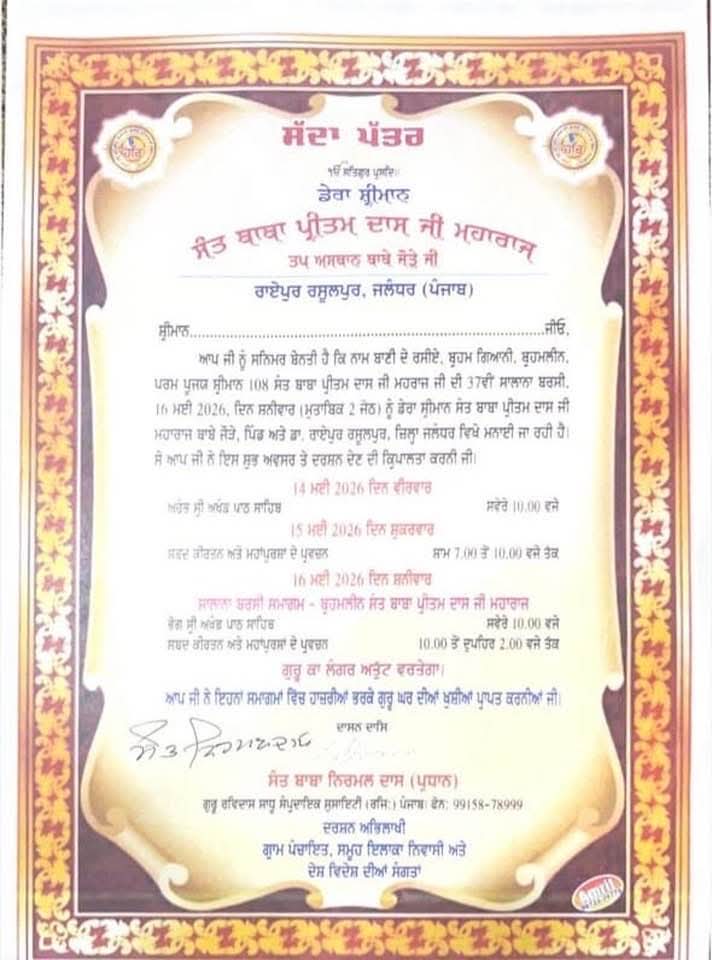 ਸੱਦਾ ਪੱਤਰ
ੴ ਸਤਿਗੁਰ ਪ੍ਰਸਾਦਿ॥
ਡੇਰਾ ਸ਼੍ਰੀਮਾਨ
ਸੰਤ ਬਾਬਾ ਪ੍ਰੀਤਮ ਦਾਸ ਜੀ ਮਹਾਰਾਜ
ਤਪ ਅਸਥਾਨ ਬਾਬੇ ਜੌੜੇ ਜੀ
ਰਾਏਪੁਰ ਰਸੂਲਪੁਰ, ਜਲੰਧਰ (ਪੰਜਾਬ)
ਸ਼੍ਰੀਮਾਨ..........................................................................ਜੀਓ,
ਆਪ ਜੀ ਨੂੰ ਸਨਿਮਰ ਬੇਨਤੀ ਹੈ ਕਿ ਨਾਮ ਬਾਣੀ ਦੇ ਰਸੀਏ, ਬ੍ਰਹਮ ਗਿਆਨੀ, ਬ੍ਰਹਮਲੀਨ,
ਪਰਮ ਪੂਜਯ ਸ਼੍ਰੀਮਾਨ 108 ਸੰਤ ਬਾਬਾ ਪ੍ਰੀਤਮ ਦਾਸ ਜੀ ਮਹਰਾਜ ਜੀ ਦੀ 37ਵੀਂ ਸਾਲਾਨਾ ਬਰਸੀ,
16 ਮਈ 2026, ਦਿਨ ਸ਼ਨੀਵਾਰ (ਮੁਤਾਬਿਕ 2 ਜੇਠ) ਨੂੰ ਡੇਰਾ ਸ਼੍ਰੀਮਾਨ ਸੰਤ ਬਾਬਾ ਪ੍ਰੀਤਮ ਦਾਸ ਜੀ
ਮਹਾਰਾਜ ਬਾਬੇ ਜੌੜੇ, ਪਿੰਡ ਅਤੇ ਡਾ. ਰਾਏਪੁਰ ਰਸੂਲਪੁਰ, ਜ਼ਿਲ੍ਹਾ ਜਲੰਧਰ ਵਿਖੇ ਮਨਾਈ ਜਾ ਰਹੀ ਹੈ।
ਸੋ ਆਪ ਜੀ ਨੇ ਇਸ ਸ਼ੁਭ ਅਵਸਰ ਤੇ ਦਰਸ਼ਨ ਦੇਣ ਦੀ ਕ੍ਰਿਪਾਲਤਾ ਕਰਨੀ ਜੀ।
14 ਮਈ 2026 ਦਿਨ ਵੀਰਵਾਰ
ਅਰੰਭ ਸ੍ਰੀ ਅਖੰਡ ਪਾਠ ਸਾਹਿਬ ਸਵੇਰੇ 10.00 ਵਜੇ
15 ਮਈ 2026 ਦਿਨ ਸ਼ੁਕਰਵਾਰ
ਸ਼ਬਦ ਕੀਰਤਨ ਅਤੇ ਮਹਾਂਪੁਰਸ਼ਾਂ ਦੇ ਪ੍ਰਵਚਨ ਸ਼ਾਮ 7.00 ਤੋਂ 10.00 ਵਜੇ ਤੱਕ
16 ਮਈ 2026 ਦਿਨ ਸ਼ਨੀਵਾਰ
ਸਾਲਾਨਾ ਬਰਸੀ ਸਮਾਗਮ - ਬ੍ਰਹਮਲੀਨ ਸੰਤ ਬਾਬਾ ਪ੍ਰੀਤਮ ਦਾਸ ਜੀ ਮਹਾਰਾਜ
ਭੋਗ ਸ੍ਰੀ ਅਖੰਡ ਪਾਠ ਸਾਹਿਬ ਸਵੇਰੇ 10.00 ਵਜੇ
ਸ਼ਬਦ ਕੀਰਤਨ ਅਤੇ ਮਹਾਂਪੁਰਸ਼ਾਂ ਦੇ ਪ੍ਰਵਚਨ 10.00 ਤੋਂ ਦੁਪਹਿਰ 2.00 ਵਜੇ ਤੱਕ
ਗੁਰੂ ਕਾ ਲੰਗਰ ਅਤੁੱਟ ਵਰਤੇਗਾ।
ਆਪ ਜੀ ਨੇ ਇਹਨਾਂ ਸਮਾਗਮਾਂ ਵਿੱਚ ਹਾਜ਼ਰੀਆਂ ਭਰਕੇ ਗੁਰੂ ਘਰ ਦੀਆਂ ਖੁਸ਼ੀਆਂ ਪ੍ਰਾਪਤ ਕਰਨੀਆਂ ਜੀ।
ਦਾਸਨ ਦਾਸਿ
ਸੰਤ ਬਾਬਾ ਨਿਰਮਲ ਦਾਸ (ਪ੍ਰਧਾਨ)
ਗੁਰੂ ਰਵਿਦਾਸ ਸਾਧੂ ਸੰਪ੍ਰਦਾਇਕ ਸੁਸਾਇਟੀ (ਰਜਿ:) ਪੰਜਾਬ: ਫੋਨ: 99158-78999
ਦਰਸ਼ਨ ਅਭਿਲਾਖੀ
ਗ੍ਰਾਮ ਪੰਚਾਇਤ, ਸਮੂਹ ਇਲਾਕਾ ਨਿਵਾਸੀ ਅਤੇ
ਦੇਸ਼ ਵਿਦੇਸ਼ ਦੀਆਂ ਸੰਗਤਾਂ
Amrit